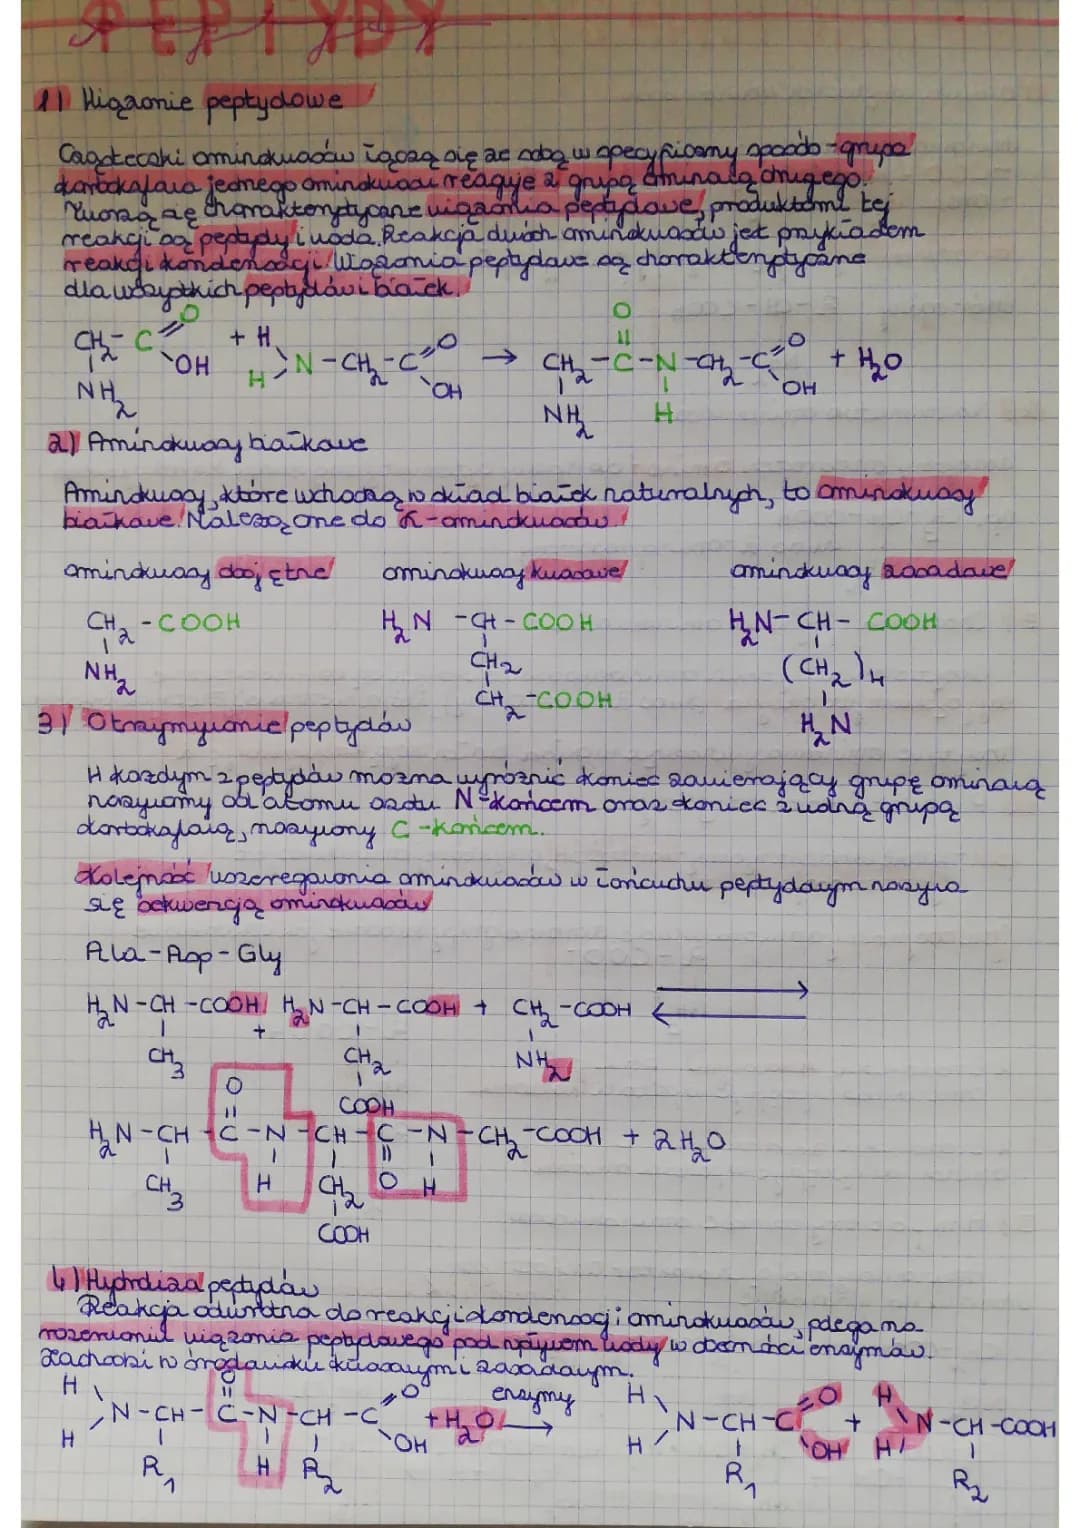 PEPTYDY
1) Wiązanie peptydowe
Cząsteczki aminokwasów łączą się ze sobą w specyficzny sposób - grupa
karboksylowa jednego aminokwasu reaguje z grupą aminową drugiego.
Tworzą się charakterystyczne wiązania peptydowe, produktami tej
reakcji są peptydy i woda. Reakcja dwóch aminokwasów jest przykładem
reakcji kondensacji. Wiązania peptydowe są charakterystyczne
dla wszystkich peptydów i białek.
O O
CH₂ - C = O + H N - CH₂ - C = O → CH₂ - C - N - CH₂ - C = O + H₂O
OH H OH OH
NH₂ NH₂ H
2) Aminokwasy białkowe
Aminokwasy, które wchodzą w skład białek naturalnych, to aminokwasy
białkowe. Należą one do α-aminokwasów.
aminokwasy obojętne aminokwasy kwasowe aminokwasy zasadowe
CH₂ - COOH H₂N - CH - COOH H₂N - CH - COOH
NH₂ CH₂ (CH₂)₄
CH₂ - COOH H₂N
3) Otrzymywanie peptydów
W każdym z peptydów można wyróżnić koniec zawierający grupę aminową
nazywamy od atomu azotu N-końcem oraz koniec z wolną grupą
karboksylową, nazywony C-końcem.
Kolejność uszeregowania aminokwasów w łańcuchu peptydowym nazywa
się sekwencją aminokwasów
Ala - Asp - Gly
H₂N - CH - COOH + H₂N - CH - COOH + CH₂ - COOH ⇄
CH₃ CH₂ NH₂
COOH
O
H₂N - CH - C - N - CH - C - N - CH₂ - COOH + 2H₂O
CH₃ H CH₂ O H
COOH
4) Hydroliza peptydów
Reakcja odwrotna do reakcji kondensacji aminokwasów, polega na
rozerwaniu wiązania peptydowego pod wpływem wody w obecności enzymów.
Zachodzi w środowisku kwasowym i zasadowym.
H O O enzymy H O H
N - CH - C - N - CH - C + H₂O → N - CH - C + N - CH - COOH
H OH H OH H
R₁ H R₂ R₁ R₂